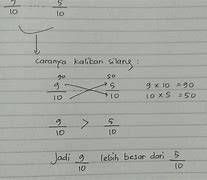 9/10 ... 5/10
caranya kalikan silang :
90 50
9/10 5/10 9 x 10 = 90
10 x 5 = 50
9/10 > 5/10
Jadi 9/10 lebih besar dari 5/10